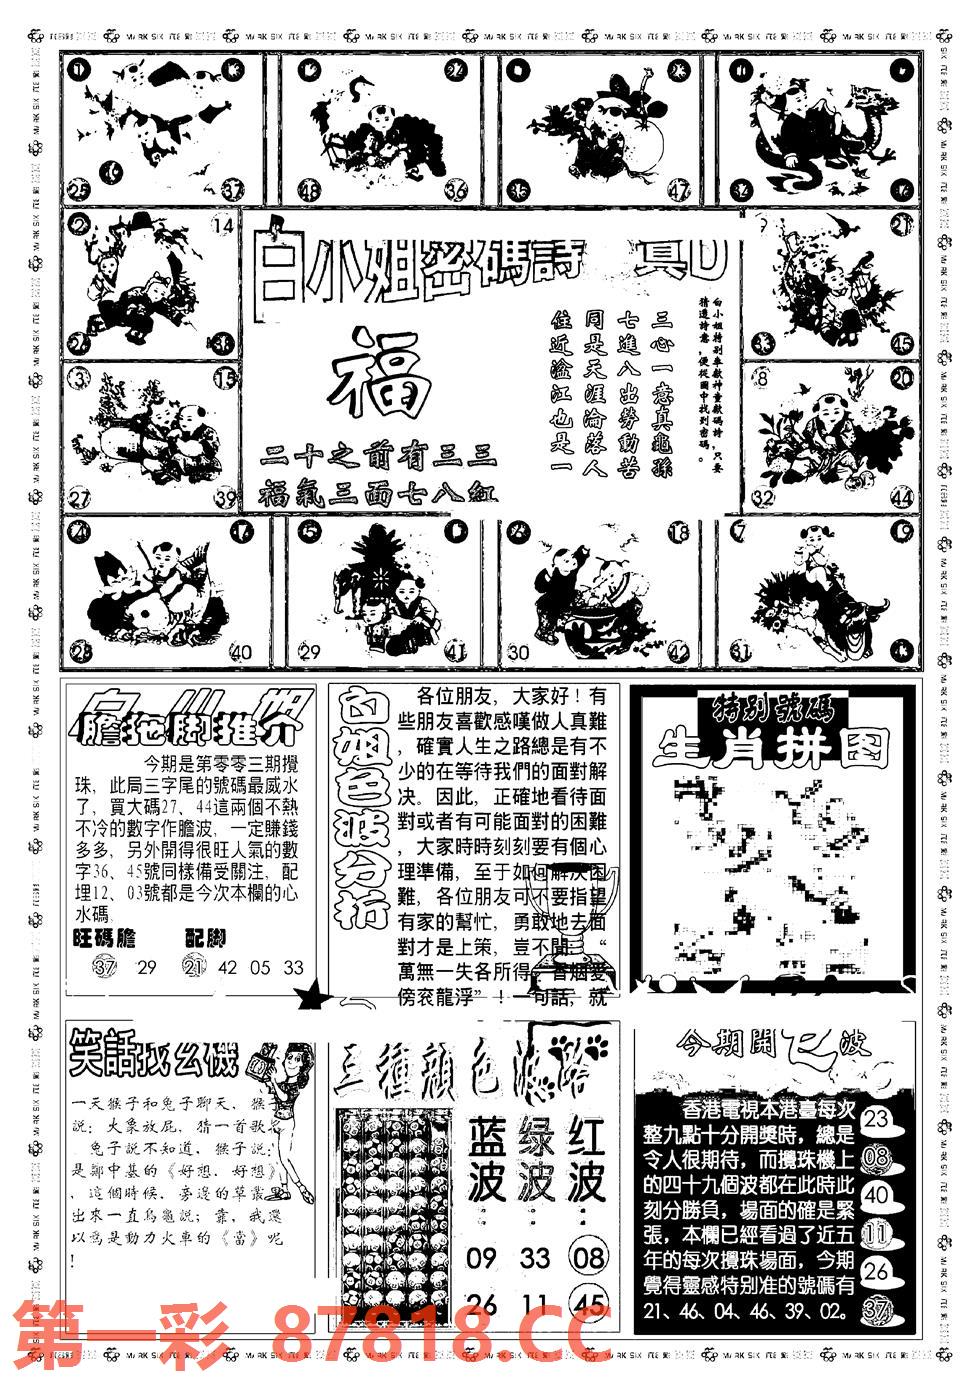 白小姐密碼詩
福
二十之前有三三
福氣三面七八紅
三心一意真龜孫
七進八出勞動苦
同是天涯淪落人
住近湓江也是一
白小姐特別奉獻神童獻碼詩,只要
猜透詩意,便從圖中找到密碼。
25 37
48 36
35 47
2 14
26 38
21
33 45
3 15
27 39
8 20
32 44
28 40
5
29 41
18
30 42
7 19
31
膽拖脚推介
今期是第零零三期攪
珠，此局三字尾的號碼最威水
了，買大碼27、44這兩個不熱
不冷的數字作膽波，一定賺錢
多多，另外開得很旺人氣的數
字36、45號同樣備受關注，配
埋12、03號都是今次本欄的心
水碼
旺碼膽 配脚
37 29 21 42 05 33
白姐色波分析
各位朋友，大家好！有
些朋友喜歡感嘆做人真難
，確實人生之路總是有不
少的在等待我們的面對解
决。因此，正確地看待面
對或者有可能面對的困難
，大家時時刻刻要有個心
理準備，至于如何解决困
難，各位朋友可不要指望
有家的幫忙，勇敢地去面
對才是上策，豈不聞：“
萬無一失各所得，百烟愛
傍衮龍浮”！一句話，就
特别號碼
生肖拼图
笑話找玄機
一天猴子和兔子聊天，猴子
説：大象放屁，猜一首歌名
兔子説不知道，猴子説：
是鄒中基的《好想，好想》
，這個時候，旁邊的草叢里
出來一直烏龜説；靠，我還
以為是動力火車的《當》呢
！
三種顔色
蓝波： 绿波： 红波：
09 33 08
26 11 45
今期開 波
香港電視本港臺每次
整九點十分開獎時，總是
令人很期待，而攪珠機上
的四十九個波都在此時此
刻分勝負，場面的確是緊
張，本欄已經看過了近五
年的每次攪珠場面，今期
覺得靈感特别准的號碼有
21、46、04、46、39、02。
23
08
40
11
26
37
第一彩 87818.CC